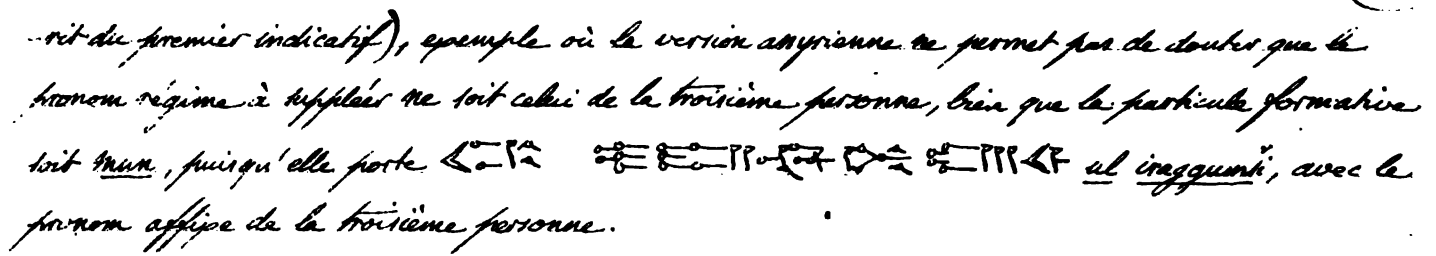 rit du premier indicatif), exemple où la version assyrienne ne permet pas de douter que le
pronom régime à suppléer ne soit celui de la troisième personne, bien que la particule formative
soit mun, puisqu'elle porte ul iraggumši, avec le
pronom affixe de la troisième personne.